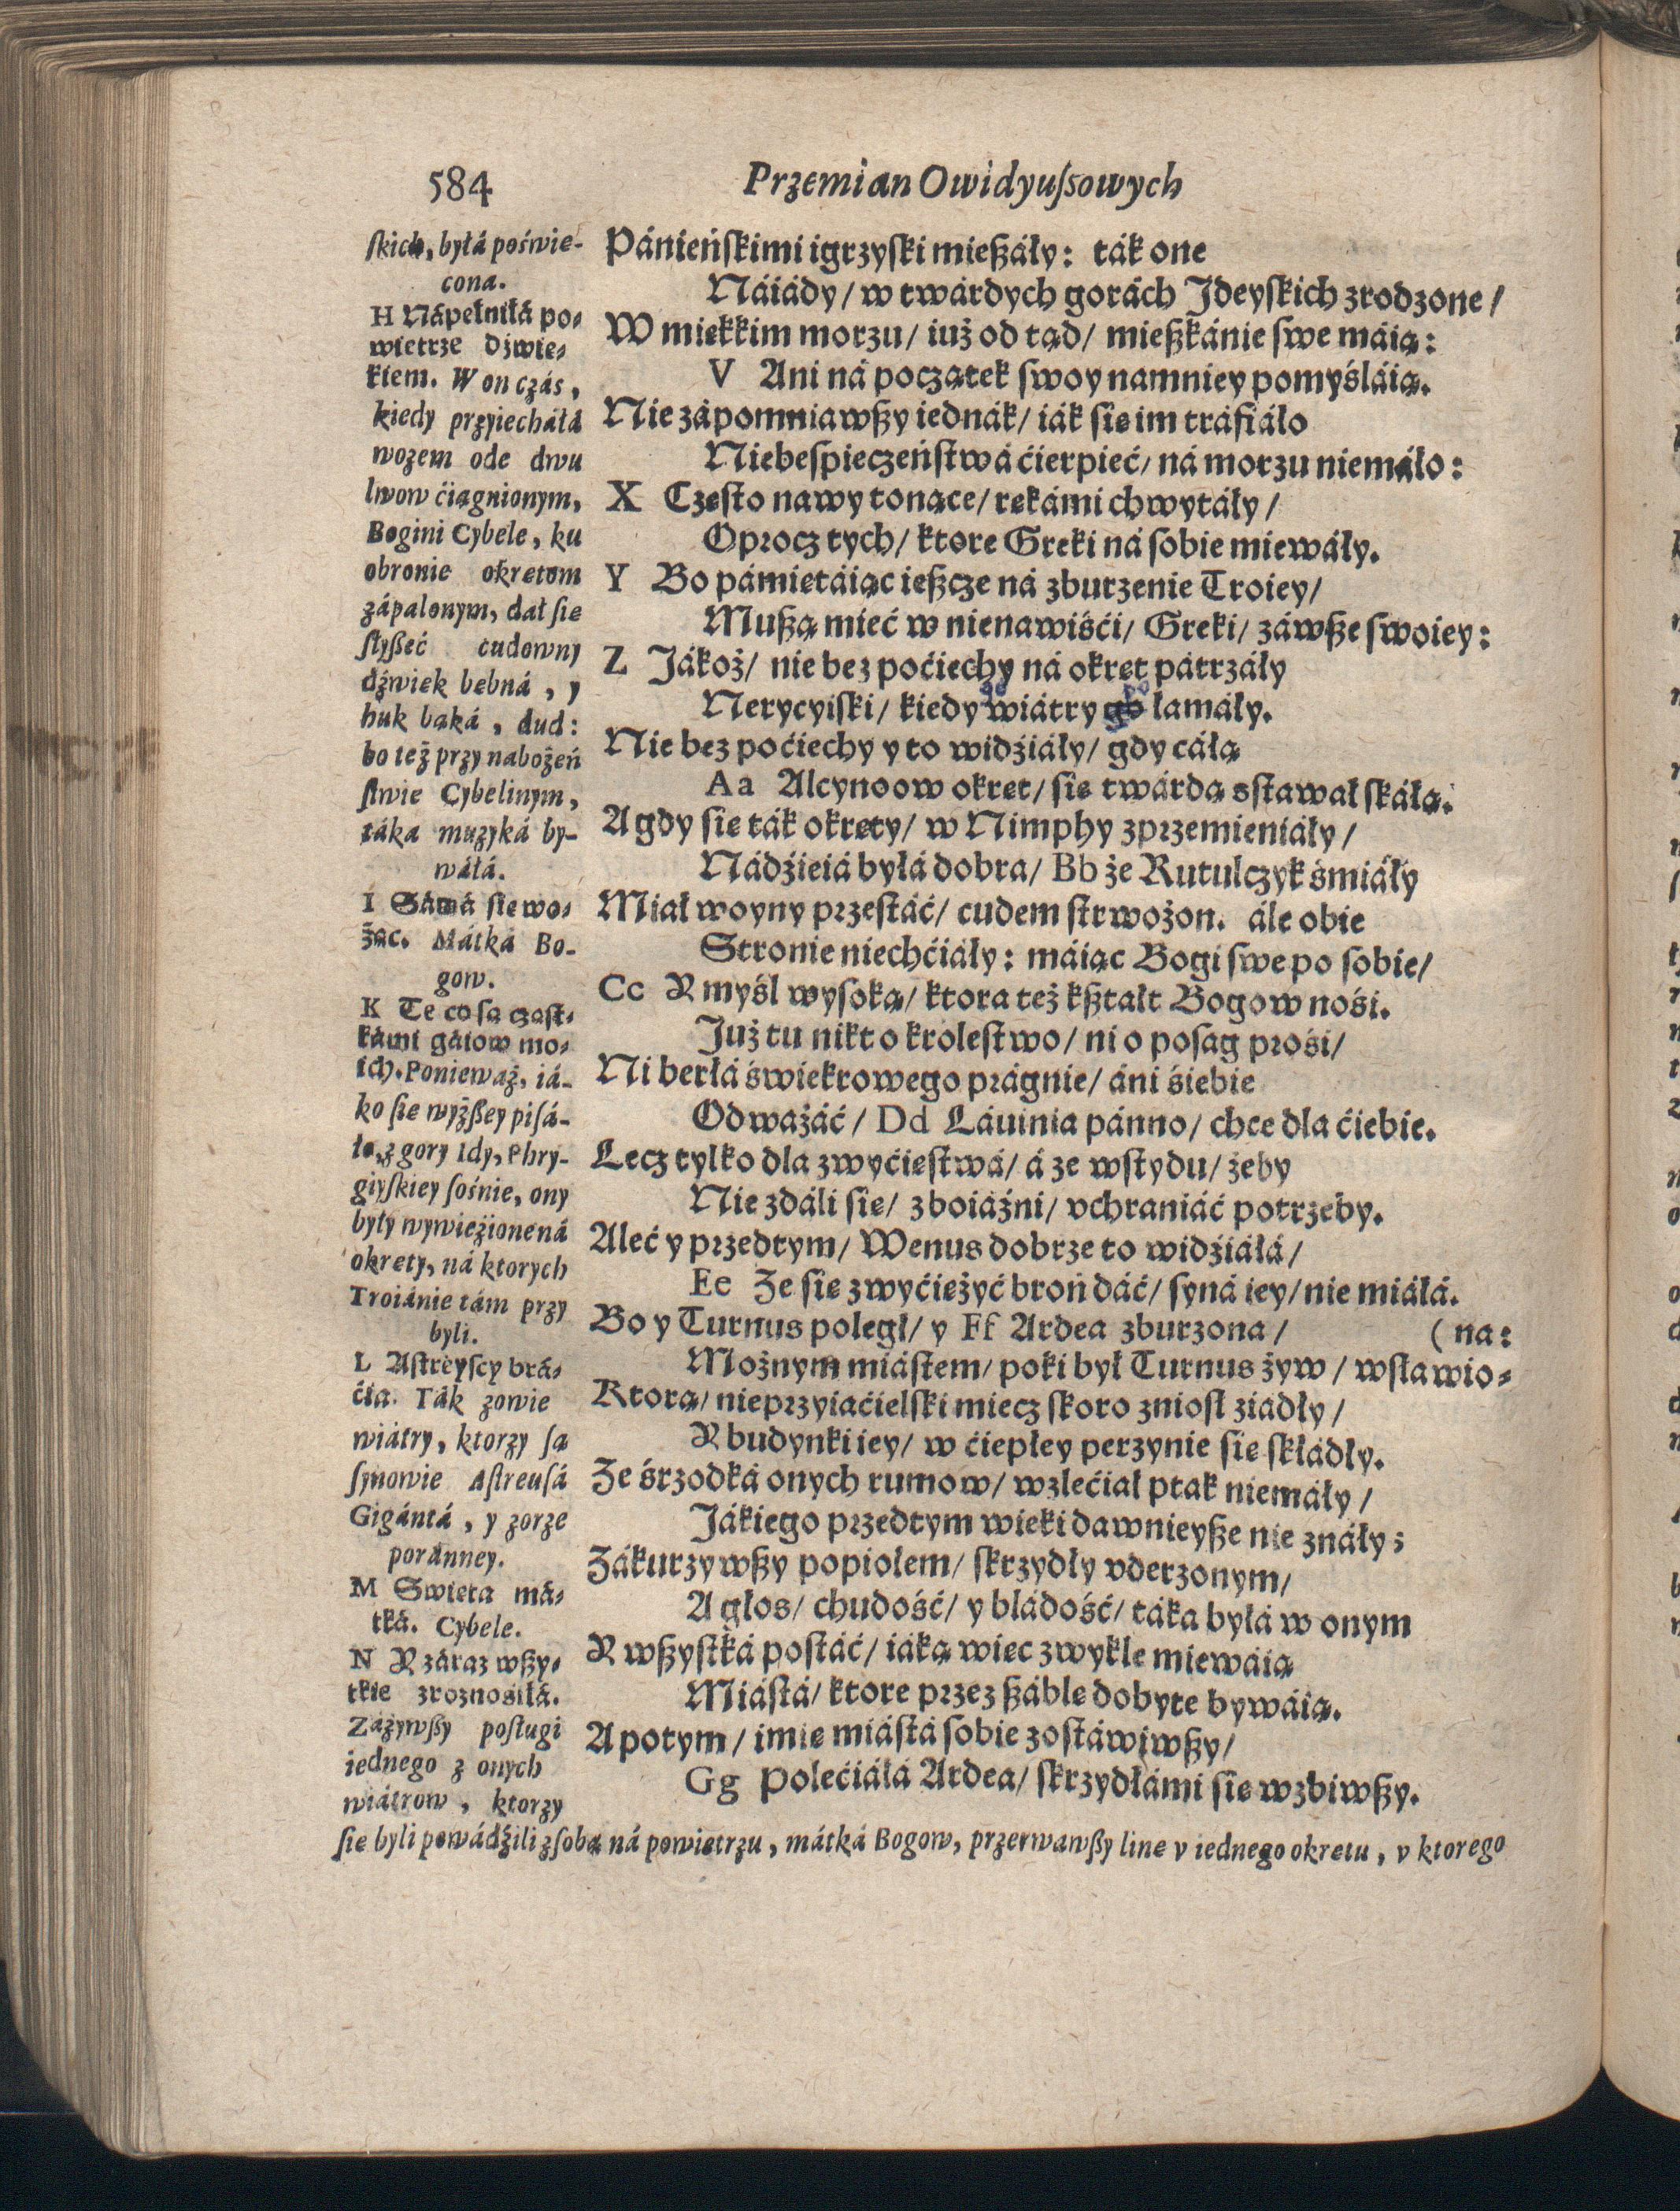 584
Przemian Owidyuſsowych
ſkich, byłá poświe-
cona.
H Nápełniłá po-
wietrze dźwie-
kiem. W on czás,
kiedy przyiecháłá
wozem ode dwu
lwow ćiągnionym,
Bogini Cybele, ku
obronie okretom
zápalonym, dał ſie
ſłyßeć cudowny
dźwiek bebná, y
huk bąká, dud:
bo też przy nabożeń
ſtwie Cybelinym,
táka muzyká by-
wáłá.
I Sámá ſie wo-
żąc. Mátká Bo-
gow.
K Te co ſą cząſt-
kámi gáiow mo-
ich. Ponieważ, iá-
ko ſie wyżßey piſá-
ło, z gory Idy, Phry-
giyſkiey ſośnie, ony
były wywieźione ná
okrety, ná ktorych
Troiánie tám przy
byli.
L Aſtreyſcy brá-
ćia. Ták zowie
wiátry, ktorzy ſą
ſynowie Aſtreuſá
Gigántá, y zorze
poránney.
M Swieta má-
tká. Cybele.
N Y záraz wßy-
tkie zroznosiłá.
Záżywßy poſługi
iednego z onych
wiátrow, ktorzy
Pánieńſkimi igrzyſki mießáły: ták one
Náiády/ w twárdych gorách Jdeyſkich zrodzone/
W miekkim morzu/ iuż od tąd/ mießkánie ſwe máią:
V Ani ná początek ſwoy namniey pomyśláią.
Nie zápomniawßy iednák/ iák ſie im tráfiáło
Niebeſpieczeńſtwá ćierpieć/ ná morzu niemáło:
X Czeſto nawy tonące/ rekámi chwytáły/
Oprocz tych/ ktore Greki ná ſobie miewáły.
Y Bo pámietáiąc ießcze ná zburzenie Troiey/
Mußą mieć w nienawiśći/ Greki/ záwße ſwoiey:
Z Jákoż/ nie bez poćiechy ná okret pátrzáły
Nerycyiſki/ kiedy wiátry go łamáły.
Nie bez poćiechy y to widźiáły/ gdy cáłą
Aa Alcynoow okret/ ſie twárdą sſtawał ſkáłą.
A gdy ſie ták okrety/ w Nimphy zprzemieniáły/
Nádźieiá byłá dobra/ Bb że Rutulczyk śmiáły
Miał woyny przeſtáć/ cudem ſtrwożon. ále obie
Stronie niechćiáły: máiąc Bogi ſwe po ſobie/
Cc Y myśl wyſoką/ ktora też kßtałt Bogow nośi.
Już tu nikt o kroleſtwo/ ni o poſag prośi/
Ni berłá świekrowego prágnie/ áni śiebie
Odważáć/ Dd Láuinia pánno/ chce dla ćiebie.
Lecz tylko dla zwyćieſtwá/ á ze wſtydu/ żeby
Nie zdáli ſie/ z boiáźni/ vchraniáć potrzeby.
Aleć y przedtym/ Wenus dobrze to widźiáłá/
Ee Ze ſie zwyćieżyć broń dáć/ ſyná iey/ nie miáłá.
Bo y Turnus poległ/ y Ff Ardea zburzona/ (na:
Możnym miáſtem/ poki był Turnus żyw/ wſławio-
Ktorą/ nieprzyiaćielſki miecz ſkoro znioſł ziádły/
Y budynki iey/ w ćiepłey perzynie ſie ſkłádły.
Ze śrzodká onych rumow/ wzlećiał ptak niemáły/
Jákiego przedtym wieki dawnieyße nie znáły;
Zákurzywßy popiołem/ ſkrzydły vderzonym/
A głos/ chudość/ y bládość/ táka byłá w onym
Y wßyſtká poſtáć/ iáką wiec zwykle miewáią
Miáſtá/ ktore przez ßáble dobyte bywáią.
A potym/ imie miáſtá ſobie zoſtáwiwßy/
Gg Polećiáłá Ardea/ ſkrzydłámi ſie wzbiwßy.
ſie byli powádźili z ſobą ná powietrzu, mátká Bogow, przerwawßy line v iednego okretu, v ktorego